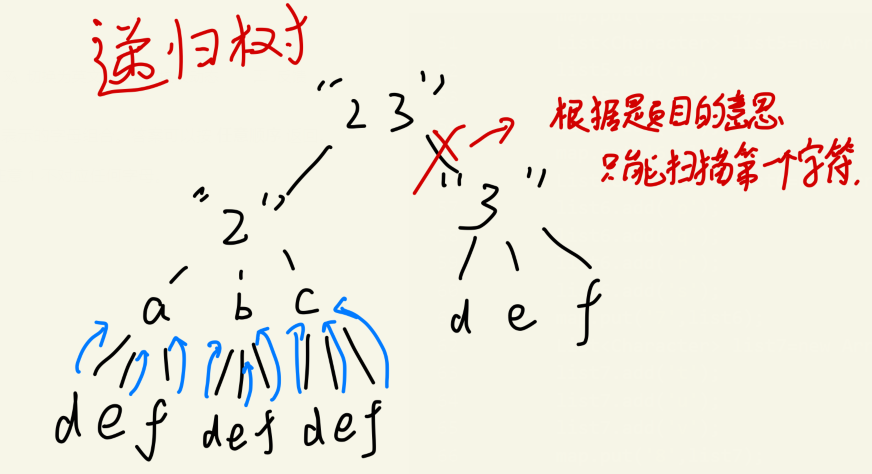 递归树
"23"
根据是题目的意思
只能扫描第一个字符.
"2" "3"
a b c d e f
d e f d e f d e f